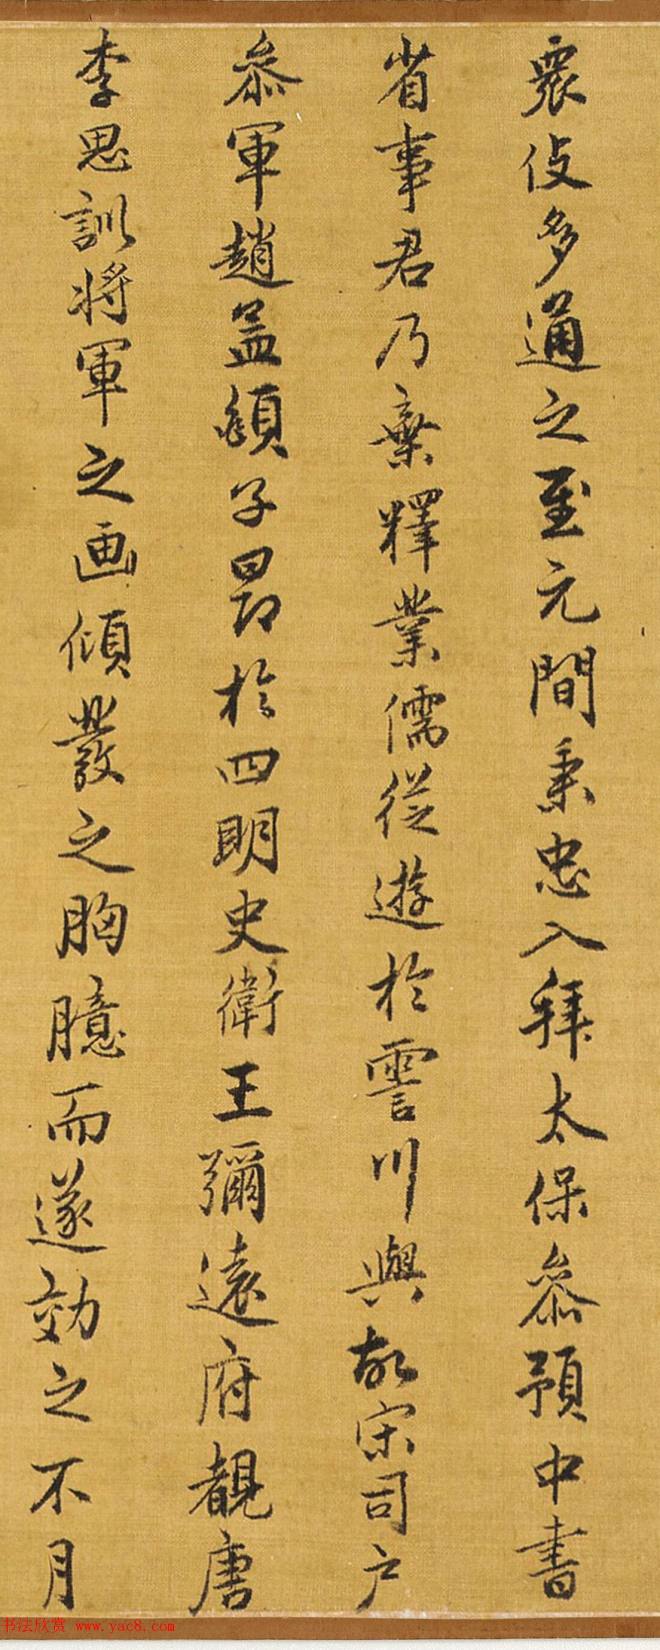 衆伎多通之至元間秉忠入拜太保叅預中書
省事君乃棄釋業儒從遊於霅川與故宋司户
叅軍趙孟頫子昂於四明史衛王彌遠府覩唐
李思訓將軍之画傾發之胸臆而遂効之不月
书法欣赏 www.yac8.com